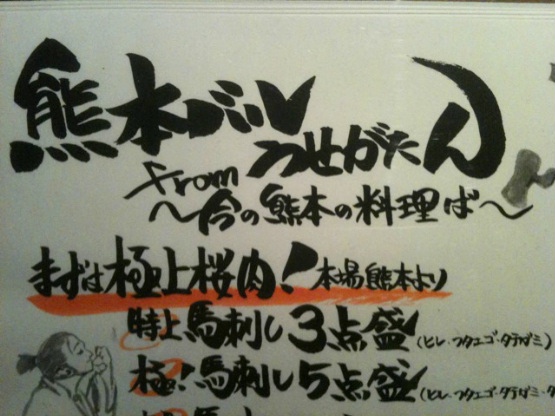 熊本バル
うせがたん
from
〜今の熊本の料理ば〜
まずは極上桜肉!本場熊本より
特上馬刺し3点盛(ヒレ・フタエゴ・タテガミ)
極!馬刺し5点盛(ヒレ・フタエゴ・タテガミ・